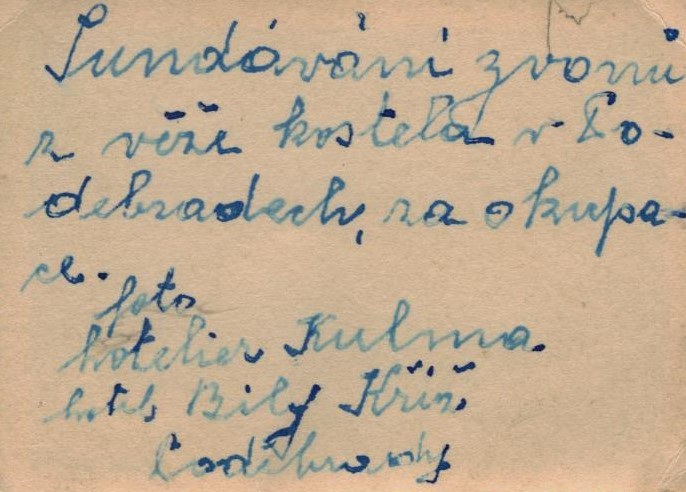 Sundávání zvonů
z věže kostela v Po-
debradech, za okupa-
ce.
foto
hotelier Kulma
hotel Bílý Kříž
Poděbrady